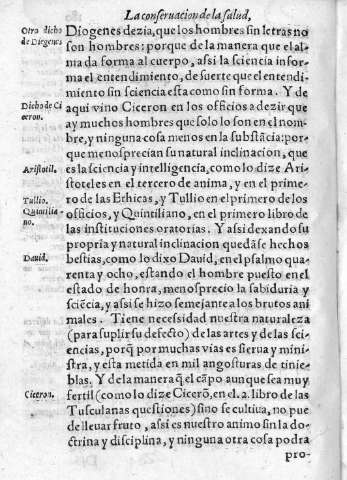 La conseruacion de la salud,
Otro dicho
de Diogenes
Diogenes dezia, que los hombres sin letras no
son hombres: porque de la manera que el al-
ma da forma al cuerpo, assi la sciencia infor-
ma el entendimiento, de suerte que el entendi-
miento sin sciencia esta como sin forma. Y de
Dicho de Ci
ceron.
aqui vino Ciceron en los officios a dezir que
ay muchos hombres que solo lo son en el nom-
bre, y ninguna cosa menos en la substãcia: por-
que menosprecian su natural inclinacion, que
Aristotil.
es la sciencia y intelligencia, como lo dize Ari-
stoteles en el tercero de anima, y en el prime-
Tullio.
ro de las Ethicas, y Tullio en el primero de los
Quintilia-
no.
officios, y Quintiliano, en el primero libro de
las instituciones oratorias. Y assi dexando su
propria y natural inclinacion quedãse hechos
Dauid.
bestias, como lo dixo Dauid, en el psalmo qua-
renta y ocho, estando el hombre puesto en el
estado de honra, menosprecio la sabiduria y
sciẽcia, y assi se hizo semejante a los brutos ani
males. Tiene necessidad nuestra naturaleza
(para suplir su defecto) de las artes y de las sci-
encias, porq̃ por muchas vias es sierua y mini-
stra, y esta metida en mil angosturas de tinie-
blas. Y de la manera q̃ el cãpo aunque sea muy
Ciceron.
fertil (como lo dize Cicerõ, en el. 2. libro de las
Tusculanas questiones) sino se cultiua, no pue
de lleuar fruto, assi es nuestro animo sin la do-
ctrina y disciplina, y ninguna otra cosa podra
pro-